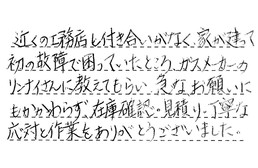 近くの工務店と付き合いがなく、家が建て
初の故障で困っていたところ、ガスメーカーの
リンナイさんに教えてもらい、急なお願いに
もかかわらず、在庫確認・見積り・丁寧な
応対と作業をありがとうございました。